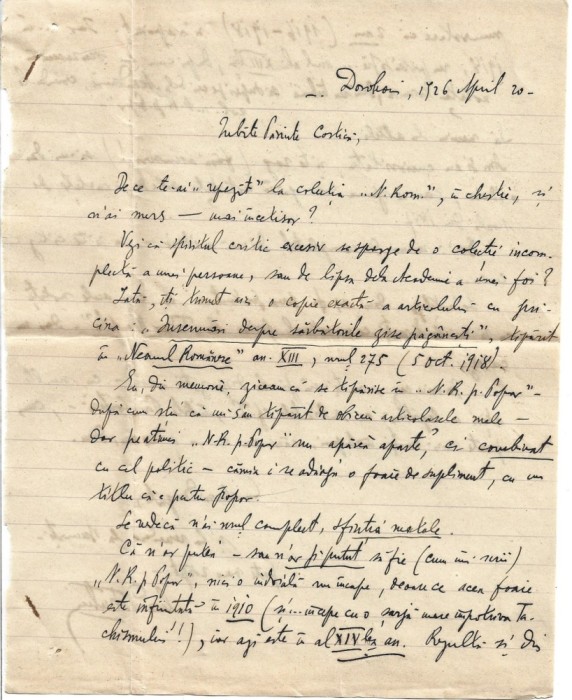 Dorohoi, 1926 April 20 -
Iubite Părinte Costică,
De ce te-ai "repezit" la colecția "N. Rom.", în chestie, și
n'ai mers — mai încetișor?
Vezi că spiritul critic excesiv se sparge de o colecție incom-
plectă a unei persoane, sau de lipsa dela Academie a unei foi?
Iată, îți trimet aici o copie exactă a articolului cu pri-
cina: "Însemnări despre sărbătorile zise păgânești", tipărit
în "Neamul Românesc" an. XIII, nrul 275 (5 Oct. 1918).
Eu, din memorie, ziceam că se tipărise în "N. R. p. Popor" -
după cum știu că mi s'au tipărit de obicei articolașele mele —
dar pe atunci "N. R. p. Popor" nu apărea aparte, ci combinat
cu cel politic — căruia i se adăoga o foaie de supliment, cu un
titlu că e pentru popor.
Se vede că n'ai nrul complect, sfinția matale.
Că n'ar putea — sau n'ar fi putut să fie (cum îmi scrii)
"N. R. p. Popor", nici o îndoială nu încape, deoarece acea foaie
este înființată în 1910 (și... începe cu o șarjă mare împotriva ta-
chismului!!), iar azi este în al XIV lea an. Rezultă și din